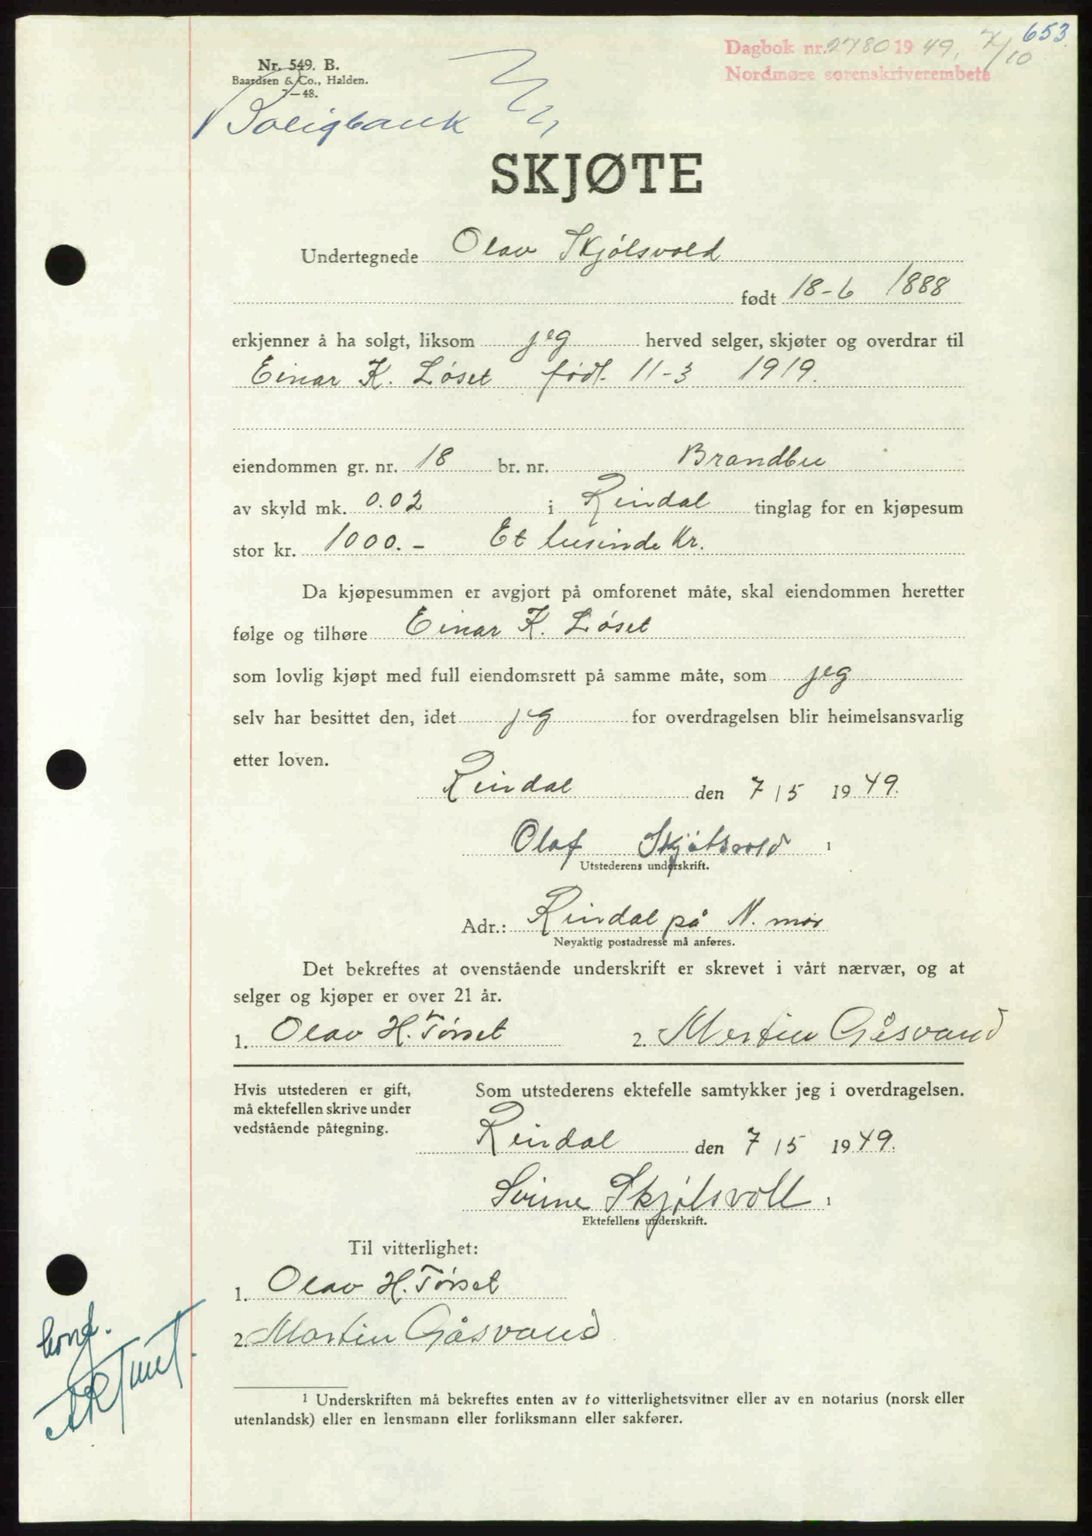 653
Dagbok nr. 2780 1949. 7/10
Nordmøre sorenskriverembete
Nr. 549. B.
Baardsen & Co., Halden.
7—48.
Boligbank
SKJØTE
Undertegnede Olav Skjølsvold
født 18-6 1888
erkjenner å ha solgt, liksom jeg herved selger, skjøter og overdrar til
Einar K. Løset født. 11-3 1919.
eiendommen gr. nr. 18 br. nr. Brandbu
av skyld mk. 0.02 i Rindal tinglag for en kjøpesum
stor kr. 1000.- Et tusinde Kr.
Da kjøpesummen er avgjort på omforenet måte, skal eiendommen heretter
følge og tilhøre Einar K. Løset
som lovlig kjøpt med full eiendomsrett på samme måte, som jeg
selv har besittet den, idet jeg for overdragelsen blir heimelsansvarlig
etter loven.
Rindal den 7/5 1949.
Olaf Skjølsvold 1
Utstederens underskrift.
Adr.: Rindal på N. mør
Nøyaktig postadresse må anføres.
Det bekreftes at ovenstående underskrift er skrevet i vårt nærvær, og at
selger og kjøper er over 21 år.
1. Olav H. Tørset 2. Martin Gåsvand
Hvis utstederen er gift,
må ektefellen skrive under
vedstående påtegning.
Som utstederens ektefelle samtykker jeg i overdragelsen.
Rindal den 7/5 1949.
Skjølsvoll 1
Ektefellens underskrift.
Til vitterlighet:
1. Olav H. Tørset
2. Martin Gåsvand
konf.
1 Underskriften må bekreftes enten av to vitterlighetsvitner eller av en notarius (norsk eller
utenlandsk) eller en lensmann eller forliksmann eller sakfører.